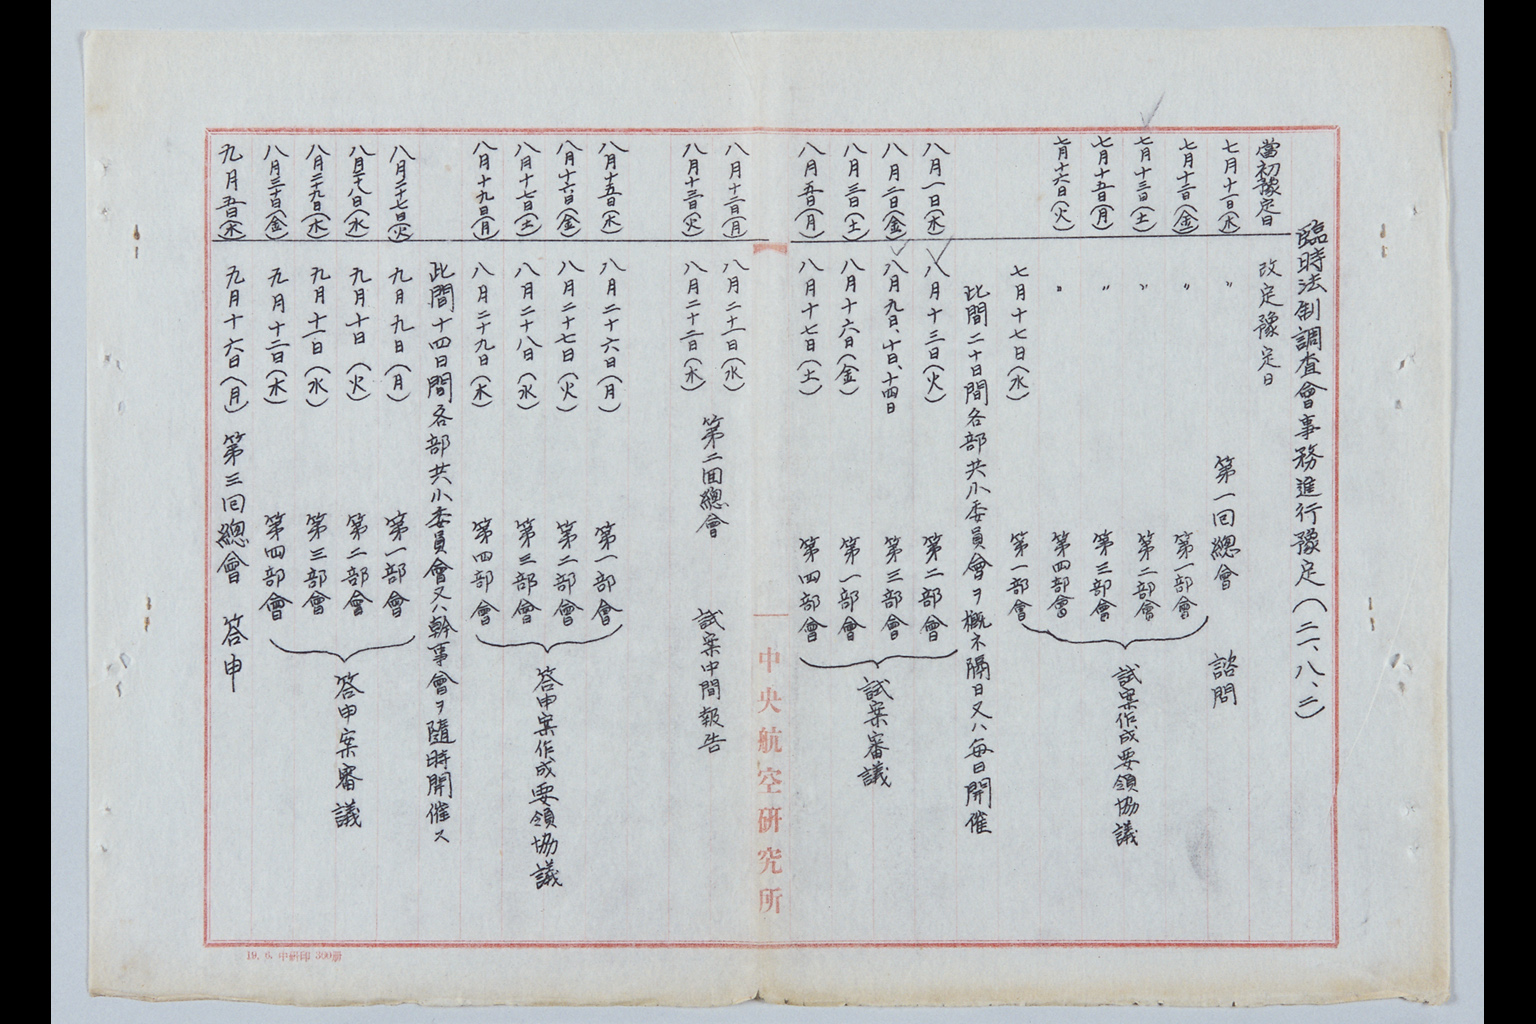 臨時法制調査會事務進行豫定(二一、八、二)
當初豫定日 改定豫定日
七月十一日(木) 〃 第一回總會 諮問
七月十二日(金) 〃 第一部會
七月十三日(土) 〃 第二部會
七月十五日(月) 〃 第三部會
七月十六日(火) 〃 第四部會
七月十七日(水) 第一部會
試案作成要領協議
此間二十日間各部共小委員會ヲ概ネ隔日又ハ每日開催
八月一日(木) 八月十三日(火) 第二部會
八月二日(金) 八月九日、十日、十四日 第三部會
八月三日(土) 八月十六日(金) 第一部會
八月五日(月) 八月十七日(土) 第四部會
試案審議
八月十二日(月) 八月二十一日(水) 第二回總會 試案中間報告
八月十三日(火) 八月二十二日(木)
八月十五日(木) 八月二十六日(月) 第一部會
八月十六日(金) 八月二十七日(火) 第二部會
八月十七日(土) 八月二十八日(水) 第三部會
八月十九日(月) 八月二十九日(木) 第四部會
答申案作成要領協議
此間十四日間各部共小委員會又ハ幹事會ヲ隨時開催ス
八月二十七日(火) 九月九日(月) 第一部會
八月二十八日(水) 九月十日(火) 第二部會
八月二十九日(木) 九月十一日(水) 第三部會
八月三十日(金) 九月十二日(木) 第四部會
答申案審議
九月五日(木) 九月十六日(月) 第三回總會 答申
中央航空研究所
19. 6. 中研印 300冊